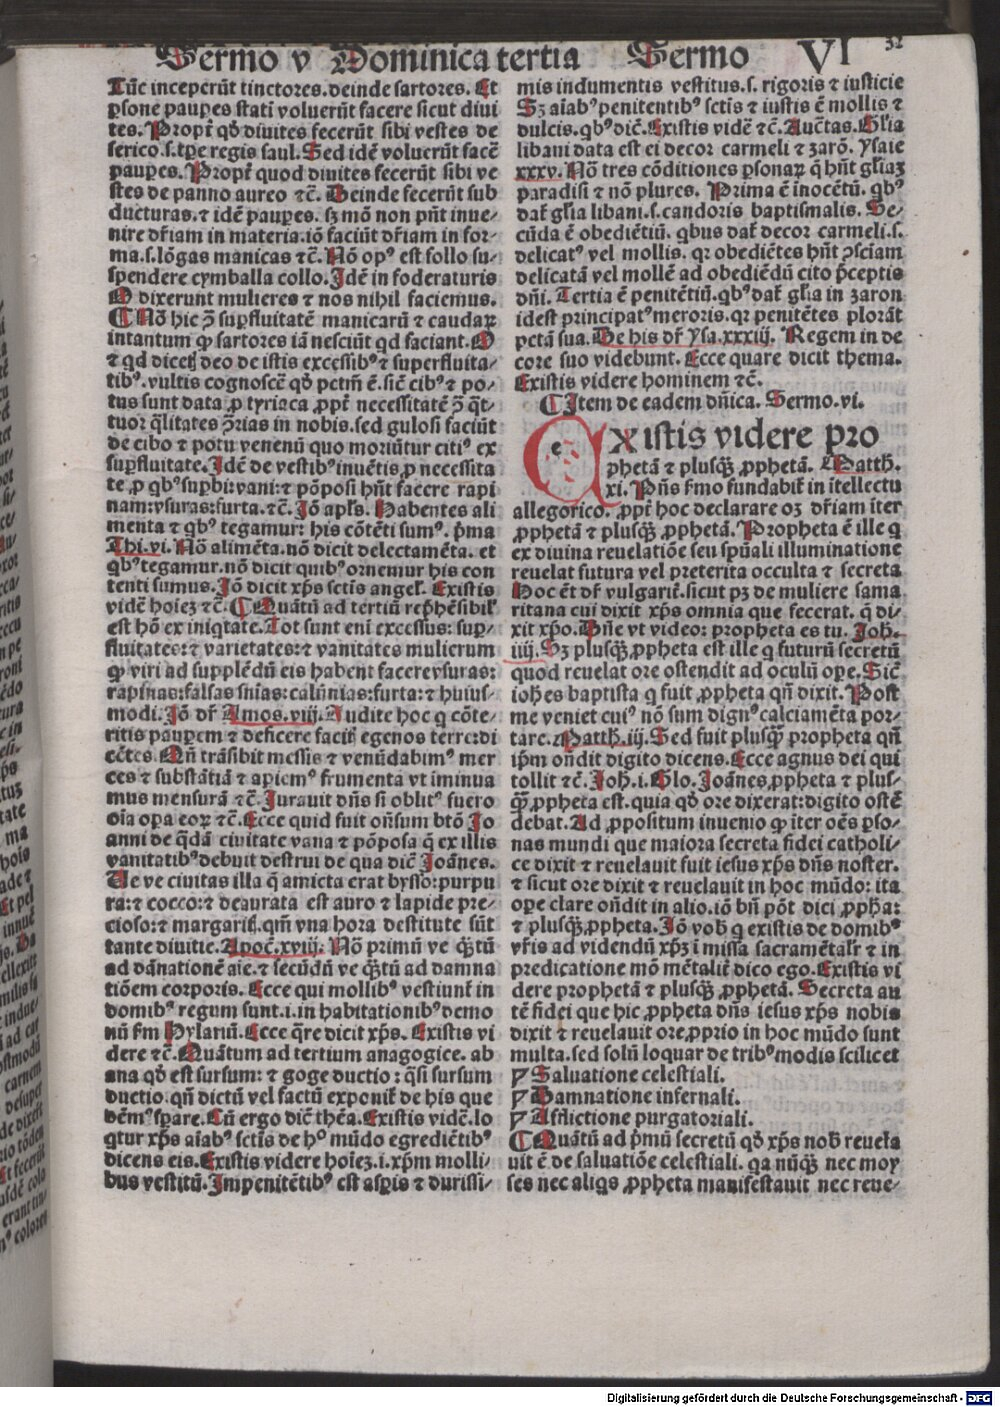 Sermo v Dominica tertia Sermo VI
32
Tūc inceperūt tinctores. deinde sartores. Et
psone paupes stati voluerūt facere sicut diui
tes. Proptˀ qď diuites fecerūt sibi vestes de
serico. s. tpe regis saul. Sed idē voluerūt facē
paupes. Proptˀ quod diuites fecerūt sibi ve
stes de panno aureo ⁊ cē. Deinde fecerūt sub
ducturas. ⁊ idē paupes. sꝫ mō non pñt inue-
nire dr̃iam in materia. iō faciūt dr̃iam in for-
ma. s. lōgas manicas ⁊cē. Nō opꝰ est follo su-
spendere cymballa collo. Idē in foderaturis
O dixerunt mulieres ⁊ nos nihil faciemus.
Nō hic ꝯ̄ supfluitatē manicarū ⁊ caudaꝝ
intantum ꝙ sartores iā nesciūt qd faciant. O
⁊ qd dicetꝭ deo de istis excessibꝰ ⁊ superfluita-
tibꝰ. vultis cognoscē qď pctm̄ ē. sic̄ cibꝰ ⁊ po-
tus sunt data ꝓ tyriaca, ꝓptˀ necessitatē ꝯ̄ q̄t-
tuor q̄litates ꝯ̄rias in nobis. sed gulosi faciūt
de cibo ⁊ potu venenū quo moriūtur citiꝰ ex
supfluitate. Idē de vestibꝰ inuētis ꝓ necessita
te, ꝓ qbꝰ supbi: vani: ⁊ pōposi hñt facere rapi
nam: vsuras: furta. ⁊cē. Iō apl̃s. Habentes ali
menta ⁊ qbꝰ tegamur: his cōtēti sumꝰ. p̄ma
Thi. vi. Nō alimēta. nō dicit delectamēta. et
qbꝰ tegamur. nō dicit quibꝰ ornemur his con
tenti sumus. Iō dicit xp̄s sctis angel̃. Existis
vidē hoiez ⁊ cē. Quātū ad tertiū rep̄hēsibil̃
est hō ex iniqtate. Tot sunt eni excessus: sup-
fluitates: ⁊ varietates: ⁊ vanitates mulierum
ꝙ viri ad supplēdū eis habent facere vsuras:
rapinas: falsas sn̄ias: calūnias: furta: ⁊ huius-
modi. Iō dr̃ Amos. viij. Audite hoc q cōte-
ritis paupem ⁊ deficere facitꝭ egenos terre: di
cētes. Qñ trāsibit messis ⁊ venūdabimꝰ mer
ces ⁊ substātiā ⁊ apiemꝰ frumenta vt iminua
mus mensurā ⁊cē. Iurauit dñs si oblitꝰ fuero
oia opa eoꝝ ⁊cē. Ecce quid fuit oñsum btō Io
anni de q̄dā ciuitate vana ⁊ pōposa q̄ ex illis
vanitatibꝰ debuit destrui de qua dic̄ Joānes.
Ue ve ciuitas illa q̄ amicta erat bysso: purpu
ra: ⁊ cocco: ⁊ deaurata est auro ⁊ lapide pre-
cioso: ⁊ margaritꝭ. qm̄ vna hora destitute sūt
tante diuitie. Apoc̄. xviij. Nō primū ve q̄ꝫtū
ad dānationē aīe. ⁊ secūdū ve q̄ꝫtū ad damna
tiōem corporis. Ecce qui mollibꝰ vestiunt̃ in
domibꝰ regum sunt. i. in habitationibꝰ demo
nū fm̄ Hylariū. Ecce q̄re dicit xp̄s. Existis vi
dere ⁊cē. Quātum ad tertium anagogice. ab
ana qď est sursum: ⁊ goge ductio: q̄si sursum
ductio. qñ dictū vel factū exponit̃ de his que
dēmꝰ sperare. Cū ergo dic̄ thēa. Existis vidē. lo
qtur xp̄s aīabꝰ sctis de hᵒ mūdo egrediētibꝰ
dicens eis. Existis videre hoiez. i. xpm̄ molli-
bus vestitū. Impenitētibꝰ est aspis ⁊ durissi-
mis indumentis vestitus. s. rigoris ⁊ iusticie
Sꝫ aīabꝰ penitentibꝰ sctis ⁊ iustis ē mollis ⁊
dulcis. qbꝰ dic̄. Existis vidē ⁊ cē. Auctas. Gl̃ia
libani data est ei decor carmeli ⁊ zarō. Ysaie
xxxv. Nō tres cōditiones psonaꝝ q̄ hñt gl̃iaꝫ
paradisi ⁊ nō plures. Prima ē inocētū. qbꝰ
dat̃ gl̃ia libani. s. candoris baptismalis. Se-
cūda ē obediētiū. qbus dat̃ decor carmeli. s.
delicatꝰ vel mollis. qꝛ obediētes hñt ꝯsciam
delicatā vel mollē ad obediēdū cito p̄ceptis
dñi. Tertia ē penitētiū. qbꝰ dat̃ gl̃ia in zaron
idest principatꝰ meroris. qꝛ penitētes plorāt
pctā sua. De his dr̃ Ysa. xxxiij. Regem in de
core suo videbunt. Ecce quare dicit thema.
Existis videre hominem ⁊cē.
Item de eadem dñica. Sermo. vi.
Existis videre pro
phetā ⁊ plusq̄ꝫ ꝓphetā. Matth.
xi. Pñs fmo fundabit̃ in ītellectu
allegorico. ꝓpt̃ hoc declarare oꝫ dr̃iam īter
ꝓphetā ⁊ plusq̄ꝫ ꝓphetā. Propheta ē ille q
ex diuina reuelatiōe seu spūali illuminatione
reuelat futura vel preterita occulta ⁊ secreta
Hoc ēt dr̃ vulgarit̃. sicut pꝫ de muliere sama
ritana cui dixit xp̄s omnia que fecerat. q̄ di-
xit xp̄o. Dñe vt video: propheta es tu. Joh.
iiij. Sꝫ plusq̄ꝫ ꝓpheta est ille q futurū secretū
quod reuelat ore ostendit ad oculū ope. Sic̄
iohēs baptista q fuit ꝓpheta qñ dixit. Post
me veniet cuiꝰ nō sum dignꝰ calciamēta por-
tare. Matth. iij. Sed fuit plusq̄ꝫ propheta qñ
ipm̄ oñdit digito dicens. Ecce agnus dei qui
tollit ⁊ cē. Joh. i. Glo. Joānes, ꝓpheta ⁊ plus-
q̄ꝫ ꝓpheta est. quia qď ore dixerat: digito ostē
debat. Ad ꝓpositum inuenio ꝙ iter oēs pso-
nas mundi que maiora secreta fidei catholi-
ce dixit ⁊ reuelauit fuit iesus xp̄s dñs noster.
⁊ sicut ore dixit ⁊ reuelauit in hoc mūdo: ita
ope clare oñdit in alio. iō bñ pōt dici ꝓpħa:
⁊ plusq̄ꝫ ꝓpheta. Iō vob̄ q existis de domibꝰ
vr̃is ad videndū xp̄ꝫ ī missa sacramētalr̃ ⁊ in
predicatione mō mētalit̃ dico ego. Existis vi
dere prophetā ⁊ plusq̄ꝫ ꝓphetā. Secreta au
tē fidei que hic ꝓpheta dñs iesus xp̄s nobis
dixit ⁊ reuelauit ore ꝓprio in hoc mūdo sunt
multa. sed solū loquar de tribꝰ modis scilicet
Saluatione celestiali.
Damnatione infernali.
Afflictione purgatoriali.
Quātū ad p̄mū secretū qď xp̄s nob̄ reuela
uit ē de saluatiōe celestiali. qa nūq̄ꝫ nec moy
ses nec aliqs ꝓpheta manifestauit nec reue-
Digitalisierung gefördert durch die Deutsche Forschungsgemeinschaft - DFG